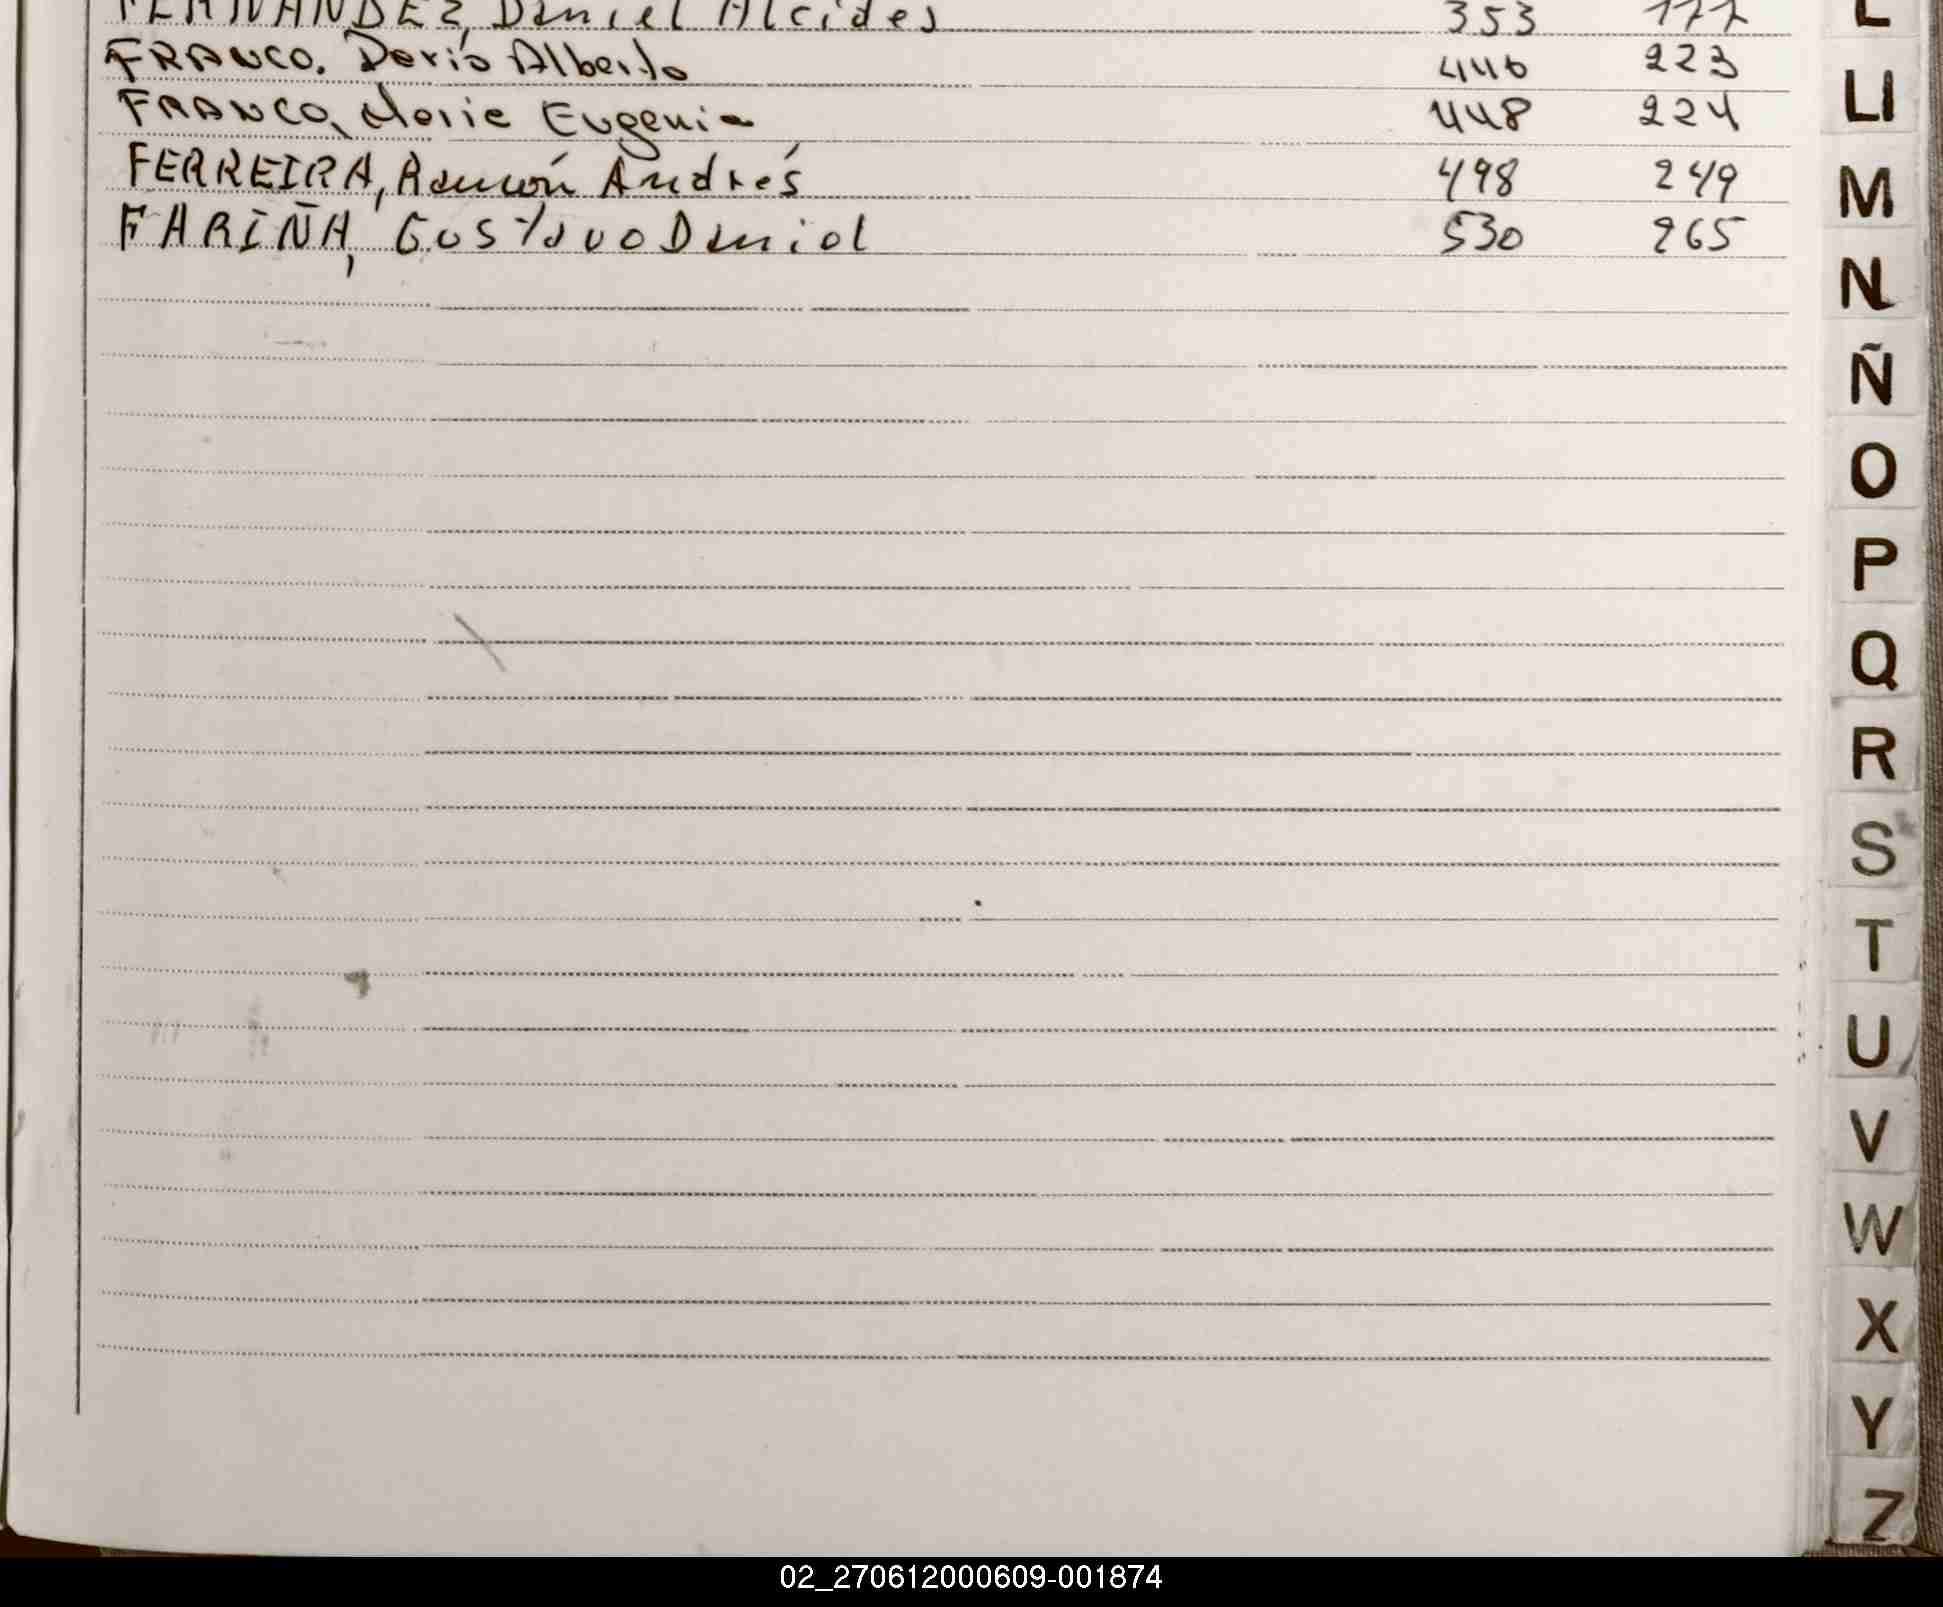 FERNANDEZ, Daniel Alcides 353 177
FRANCO, Darío Alberto 446 223
FRANCO, Marie Eugenia 448 224
FERREIRA, Ramón Andrés 498 249
FARIÑA, Gustavo Daniel 530 265
L
Ll
M
N
Ñ
O
P
Q
R
S
T
U
V
W
X
Y
Z
02_270612000609-001874